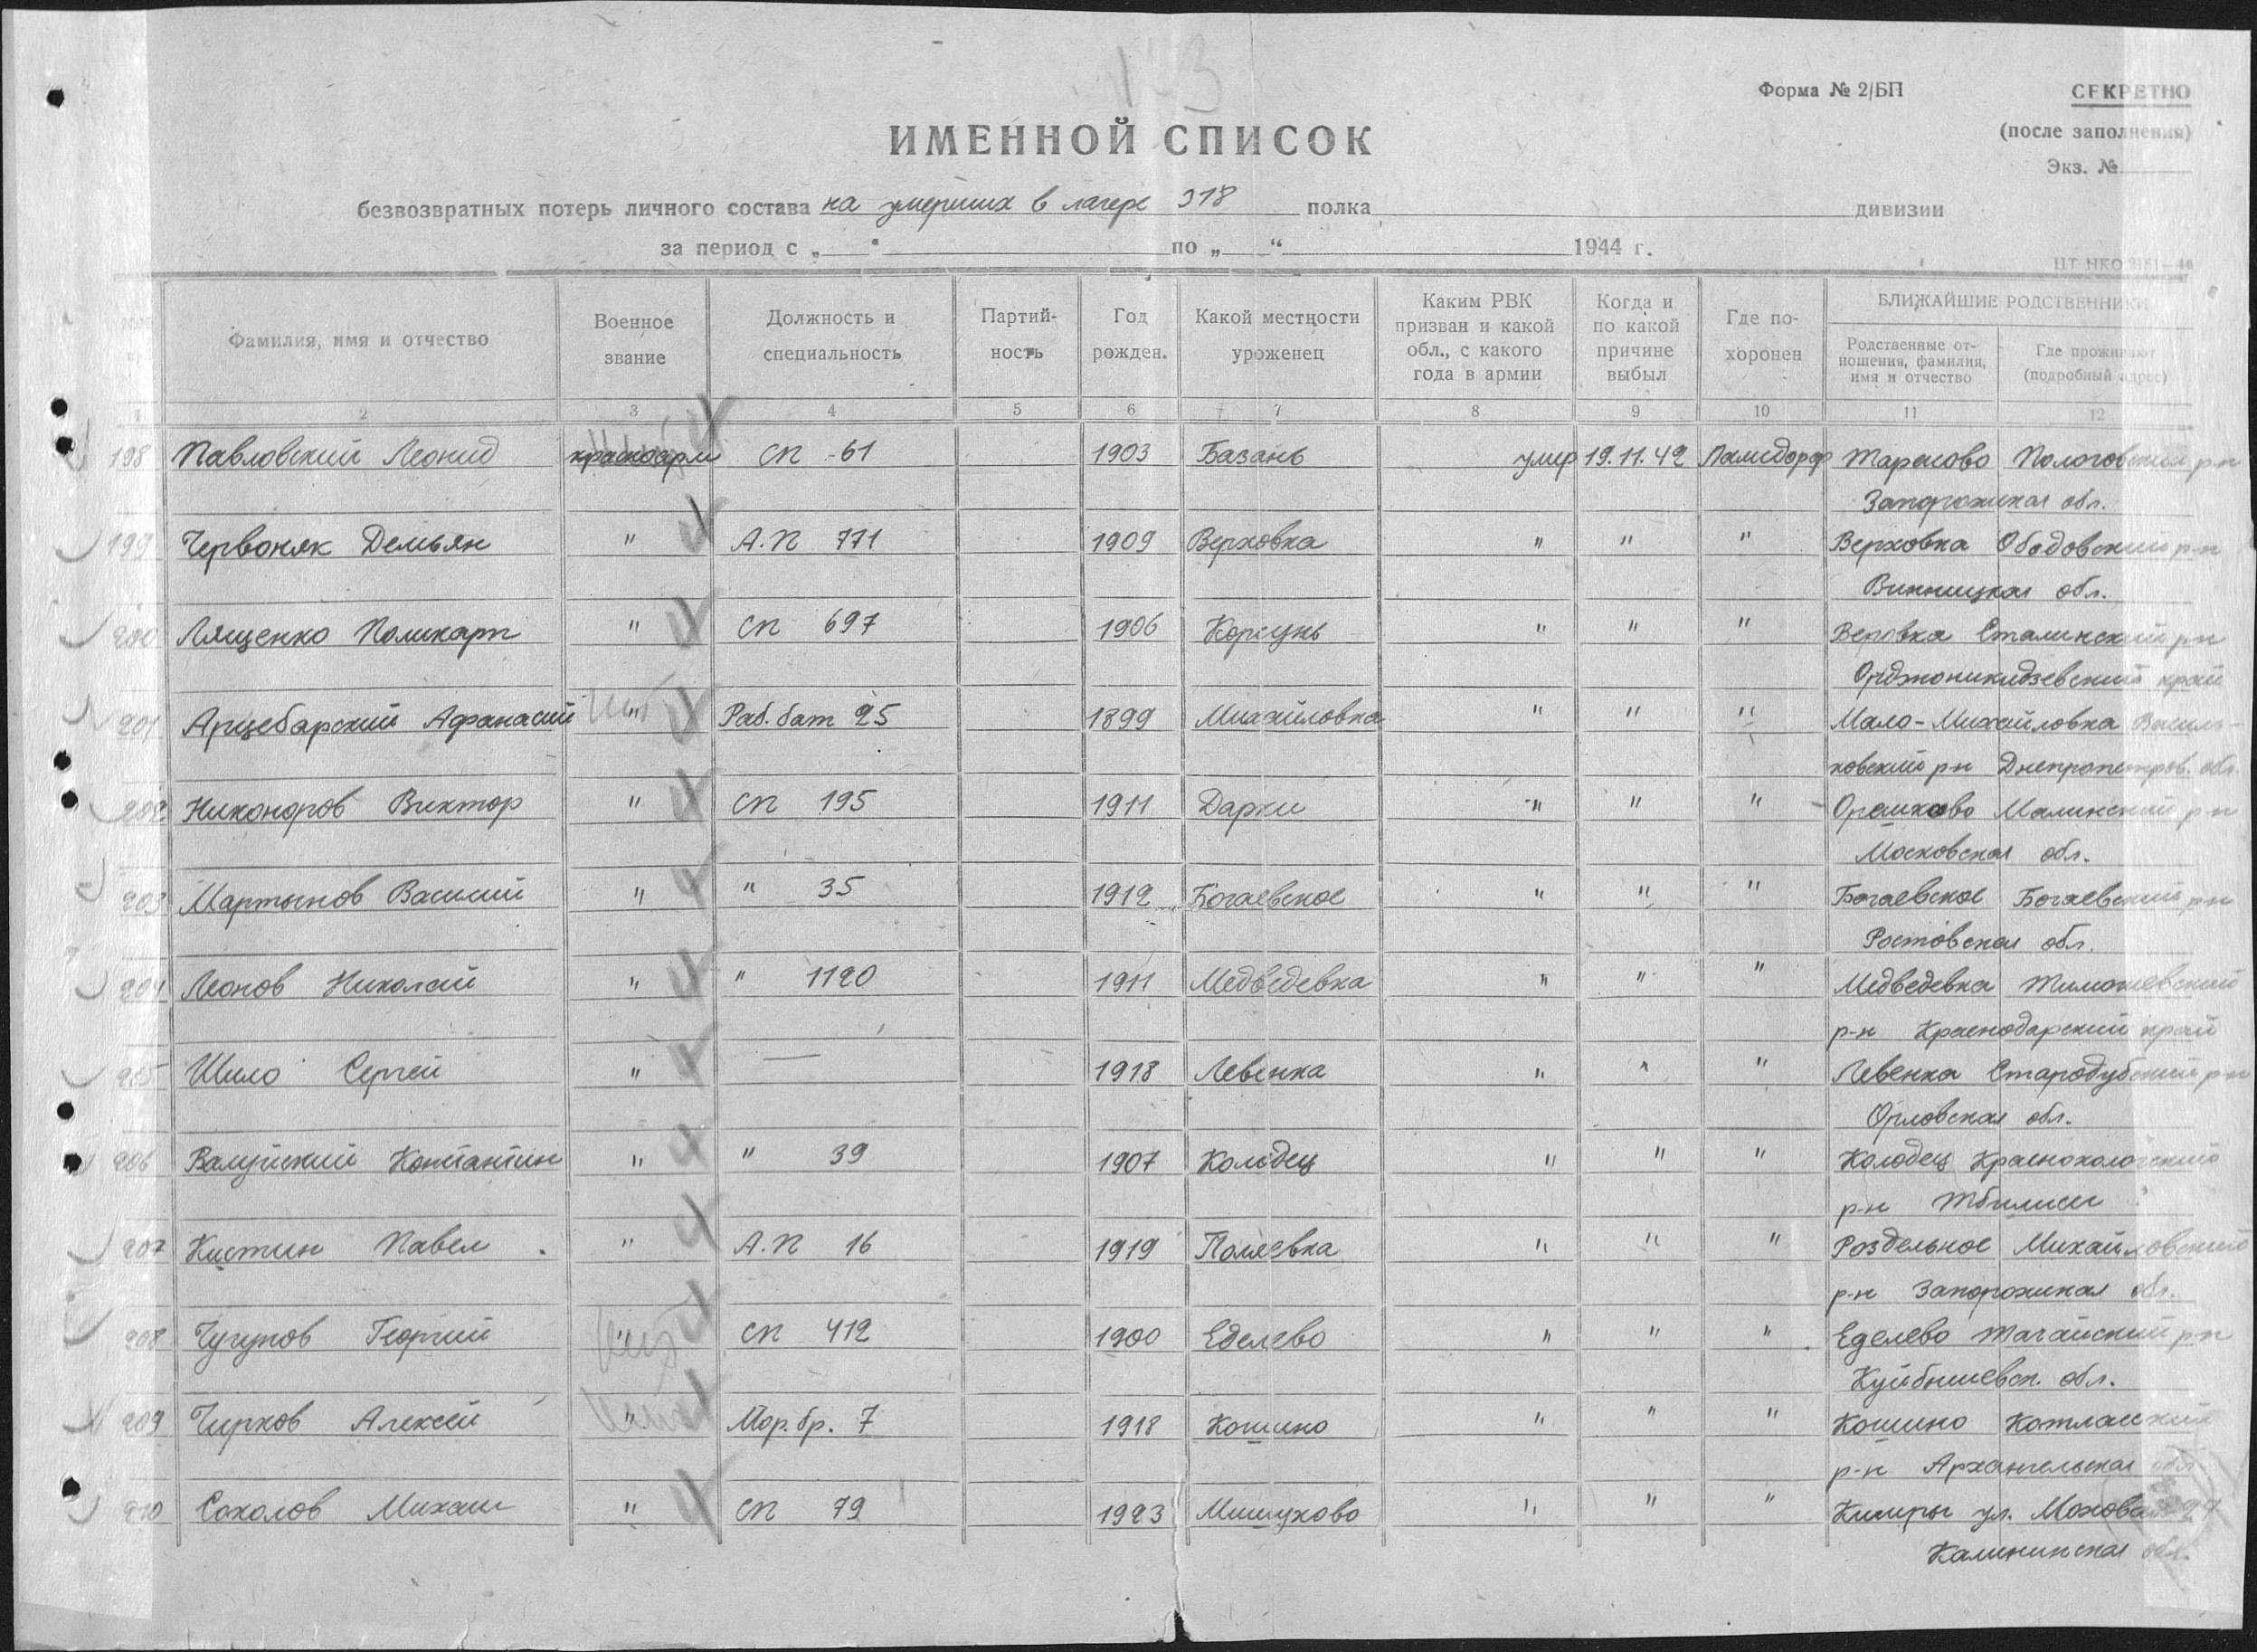 Форма № 2/БП
СЕКРЕТНО
(после заполнения)
Экз. №
ИМЕННОЙ СПИСОК
безвозвратных потерь личного состава на умерших в лагере 318 полка дивизии
за период с „ “ по „ “ 1944 г.
Фамилия, имя и отчество Военное звание Должность и специальность Партий-ность Год рожден. Какой местности уроженец Каким РВК призван и какой обл., с какого года в армии Когда и по какой причине выбыл Где по-хоронен БЛИЖАЙШИЕ РОДСТВЕННИКИ
Родственные от-ношения, фамилия, имя и отчество Где проживают (подробный адрес)
1 2 3 4 5 6 7 8 9 10 11 12
198 Павловский Леонид красноарм СП -61 1903 Базань умер 19.11.42 Ламсдорф Тарасово Пологовский р-н
Запорожская обл.
199 Червоняк Демьян " А.П 771 1909 Верховка " " " Верховка Ободовский р-н
Винницкая обл.
200 Лященко Поликарп " СП 697 1906 Корсунь " " " Веровка Сталинский р-н
Орджоникидзевский край
201 Арцебарский Афанасий " Раб. бат 25 1899 Михайловка " " " Мало-Михайловка Василь-
ковский р-н Днепропетров. обл.
202 Никоноров Виктор " СП 195 1911 Дарки " " " Орешково Малинский р-н
Московская обл.
203 Мартынов Василий " " 35 1912 Богаевское " " " Богаевское Богаевский р-н
Ростовская обл.
204 Леонов Николай " " 1120 1911 Медведевка " " " Медведевка Тимошевский
р-н Краснодарский край
205 Шило Сергей " — 1918 Левенка " " " Левенка Стародубский р-н
Орловская обл.
206 Валуйский Константин " " 39 1907 Колодец " " " Колодец
р-н Тбилиси
207 Кистин Павел " А.П 16 1919 Поляевка " " " Роздельное Михайловский
р-н Запорожская обл.
208 Чугунов Георгий " СП 412 1900 Еделево " " " Еделево Тагайский р-н
Куйбышевск. обл.
209 Чирков Алексей " Мор. бр. 7 1918 Кошино " " " Кошино Котласский
р-н Архангельская обл.
210 Соколов Михаил " СП 79 1923 Мишуково " " " Кимры ул. Моховая
Калининская обл.